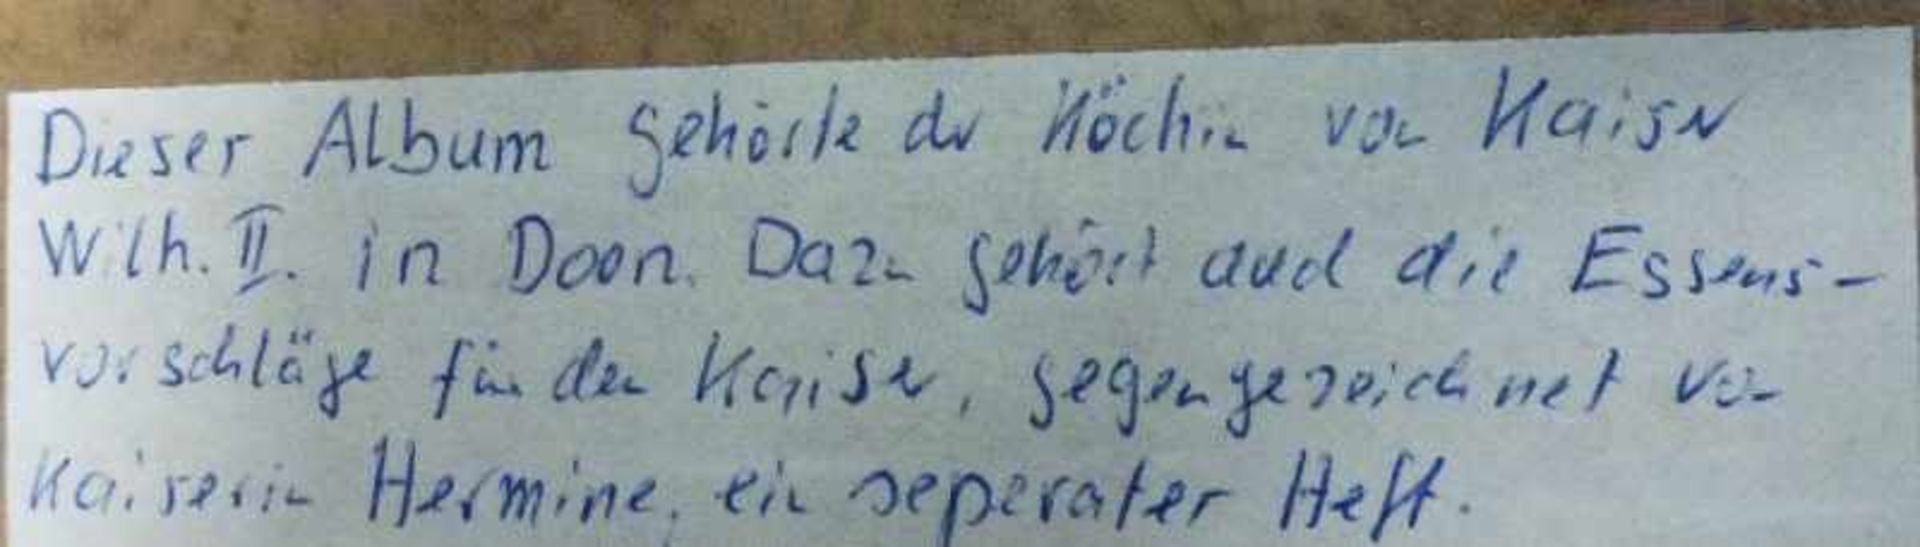 Dieser Album gehörte der Köchin von Kaiser
Wilh. II. in Doon. Dazu gehört auch die Essens-
vorschläge für den Kaiser, gegengezeichnet von
Kaiserin Hermine, ein seperater Heft.